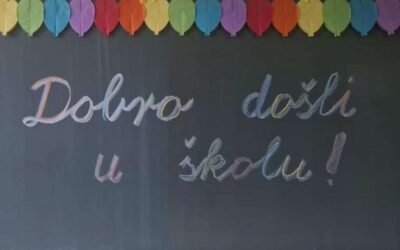 Dobro došli
u školu!